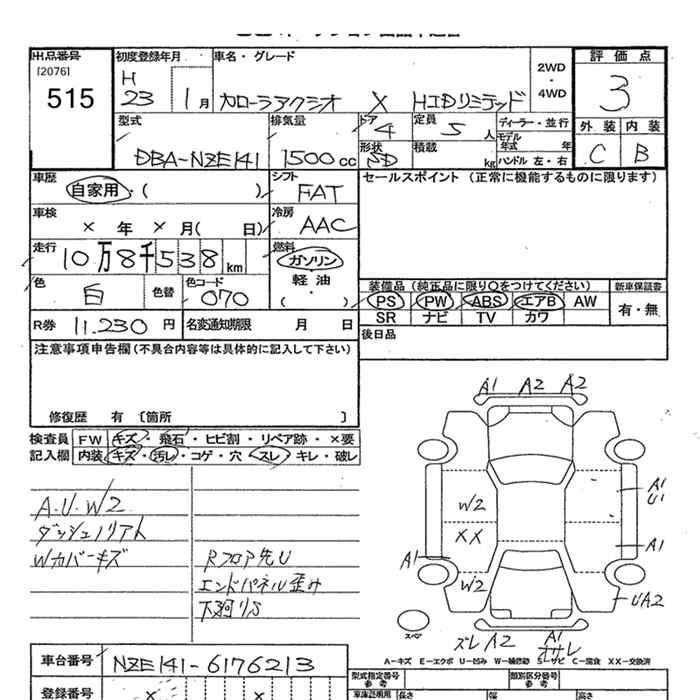 出品番号 [2076] 515
初度登録年月 H 23 1月
車名・グレード カローラアクシオ X HIDリミテッド
2WD・4WD
評価点 3
外装 内装
C B
型式 DBA-NZE141
排気量 1500cc
ドア 4
形状 SD
定員 5人
積載 kg
ディーラー・並行
モデル年式 年
ハンドル 左・右
車歴 自家用・( )
シフト FAT
セールスポイント (正常に機能するものに限ります)
車検 × 年 × 月( 日)
冷房 AAC
走行 10万8千538km
燃料 ガソリン
軽油
・( )
色 白 色替 色コード 070
装備品 (純正品に限り○をつけてください) 新車保証書
PS PW ABS エアB AW 有・無
SR ナビ TV カワ
R券 11.230円 名変通知期限 月 日
後日品
注意事項申告欄(不具合内容等は具体的に記入して下さい)
修復歴 有 〔箇所 〕
検査員 FW キズ・飛石・ヒビ割・リペア跡・×要
記入欄 内装 キズ・汚レ・コゲ・穴・スレ・キレ・破レ
A.U.W2
ダッシュノリアト
Wカバーキズ
Rフロア先U
エンドパネル歪み
下廻りS
A1 A2 A2
W2
XX
W2
A1
A1
U1
A1
UA2
スペア
ズレ A2
A1
オサレ
A-キズ E-エクボ U-凹み W-補修跡 S-サビ C-腐食 XX-交換済
車台番号 NZE141-6176213
登録番号 × ×
型式指定番号 参考
類別区分番号 参考
車庫証明用 長さ 幅 高さ